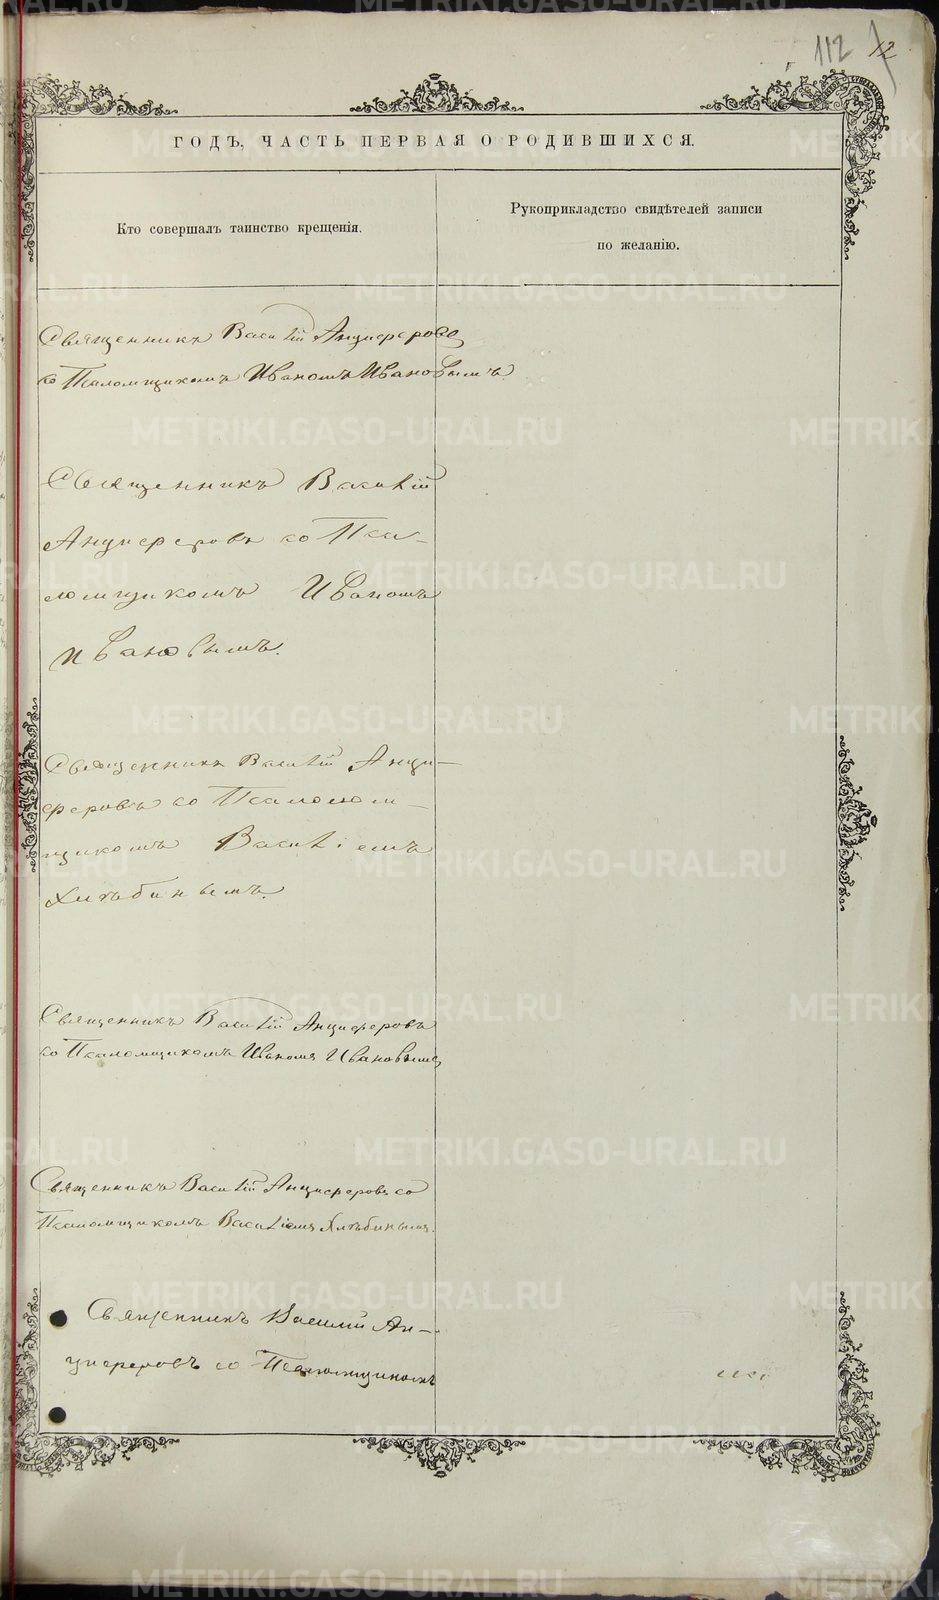 112 12
ГОДЪ, ЧАСТЬ ПЕРВАЯ О РОДИВШИХСЯ.
Кто совершалъ таинство крещенія.
Рукоприкладство свидѣтелей записи
по желанію.
Священникъ Василій Анциферовъ
со Псаломщикомъ Иваномъ Ивановымъ
Священникъ Василій
Анциферовъ со Пса-
ломщикомъ Иваномъ
Ивановымъ.
Священникъ Василій Анци-
феровъ со Псаломщи-
щикомъ Василіемъ
Хлѣбинымъ.
Священникъ Василій Анциферовъ
со Псаломщикомъ Иваномъ Ивановымъ
Священникъ Василій Анциферовъ со
Псаломщикомъ Василіемъ Хлѣбинымъ.
Священникъ Василій Ан-
циферовъ со Псаломщикомъ
METRIKI.GASO-URAL.RU